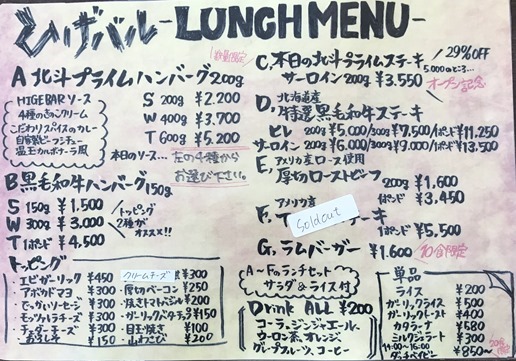 ひげバル -LUNCH MENU-
数量限定
A 北斗プライムハンバーグ 200g
HIGEBAR ソース
4種のきのこクリーム
こだわりスパイスのカレー
自家製ビーフシチュー
温玉カルボナーラ風
S 200g ¥2.200
W 400g ¥3.700
T 600g ¥5.200
本日のソース… 左の4種から
お選び下さい。
B 黒毛和牛ハンバーグ 150g
S 150g ¥1.500
W 300g ¥3.000
T 1ポンド ¥4.500
トッピング
2種が
オススメ!!
トッピング
・エビガーリック ¥450
・アボカドマヨ ¥300
・でっかいソーセージ ¥300
・モッツァレラチーズ ¥300
・チェダーチーズ ¥300
・おろし ¥150
クリームチーズ ¥300
・厚切ベーコン ¥250
・焼きトマトバジル ¥200
・ガーリックバター ¥150
・目玉焼き ¥100
・山わさび ¥200
C, 本日の北斗プライムステーキ
サーロイン 200g ¥3.550
29%OFF
5.000のところ…
オープン記念
D, 北海道産
特選黒毛和牛ステーキ
ヒレ 200g ¥5.000/300g ¥7.500/1ポンド ¥11.250
サーロイン 200g ¥6.000/300g ¥9.000/1ポンド ¥13.500
E, アメリカ産ロース使用
厚切ローストビーフ 200g ¥1,600
1ポンド ¥3.450
F, アメリカ産
Sold out
ーキ
1ポンド ¥5,500
G, ラムバーガー ¥1.600 10食限定
A~Fのランチセット
サラダ&ライス付
Drink ALL ¥200
コーラ、ジンジャエール、
ウーロン茶、オレンジ、
グレープフルーツ、コーヒー
単品
・ライス ¥200
・ガーリックライス ¥500
・ガーリックトースト ¥400
・カタラーナ ¥580
・ミルクジェラート ¥300
14:00~16:00
¥850~